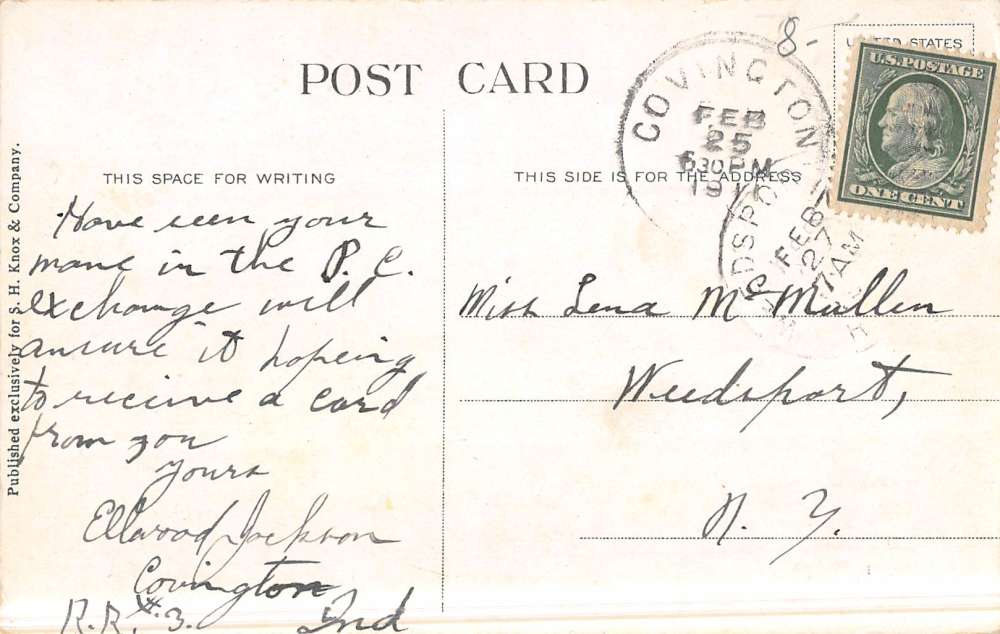 8-
UNITED STATES
U.S.POSTAGE
ONE CENT
POST CARD
COVINGTON
FEB
25
630PM
191
DSPO
FEB
27
7AM
THIS SPACE FOR WRITING
THIS SIDE IS FOR THE ADDRESS
Have seen your
name in the P. C.
exchange will
ansure it hopeing
to receive a card
from you
Yours
Ellwood Jackson
Covington
R.R. #.3. Ind
Miss Lena McMullen
Weedsport,
N. Y.
Published exclusively for S. H. Knox & Company.